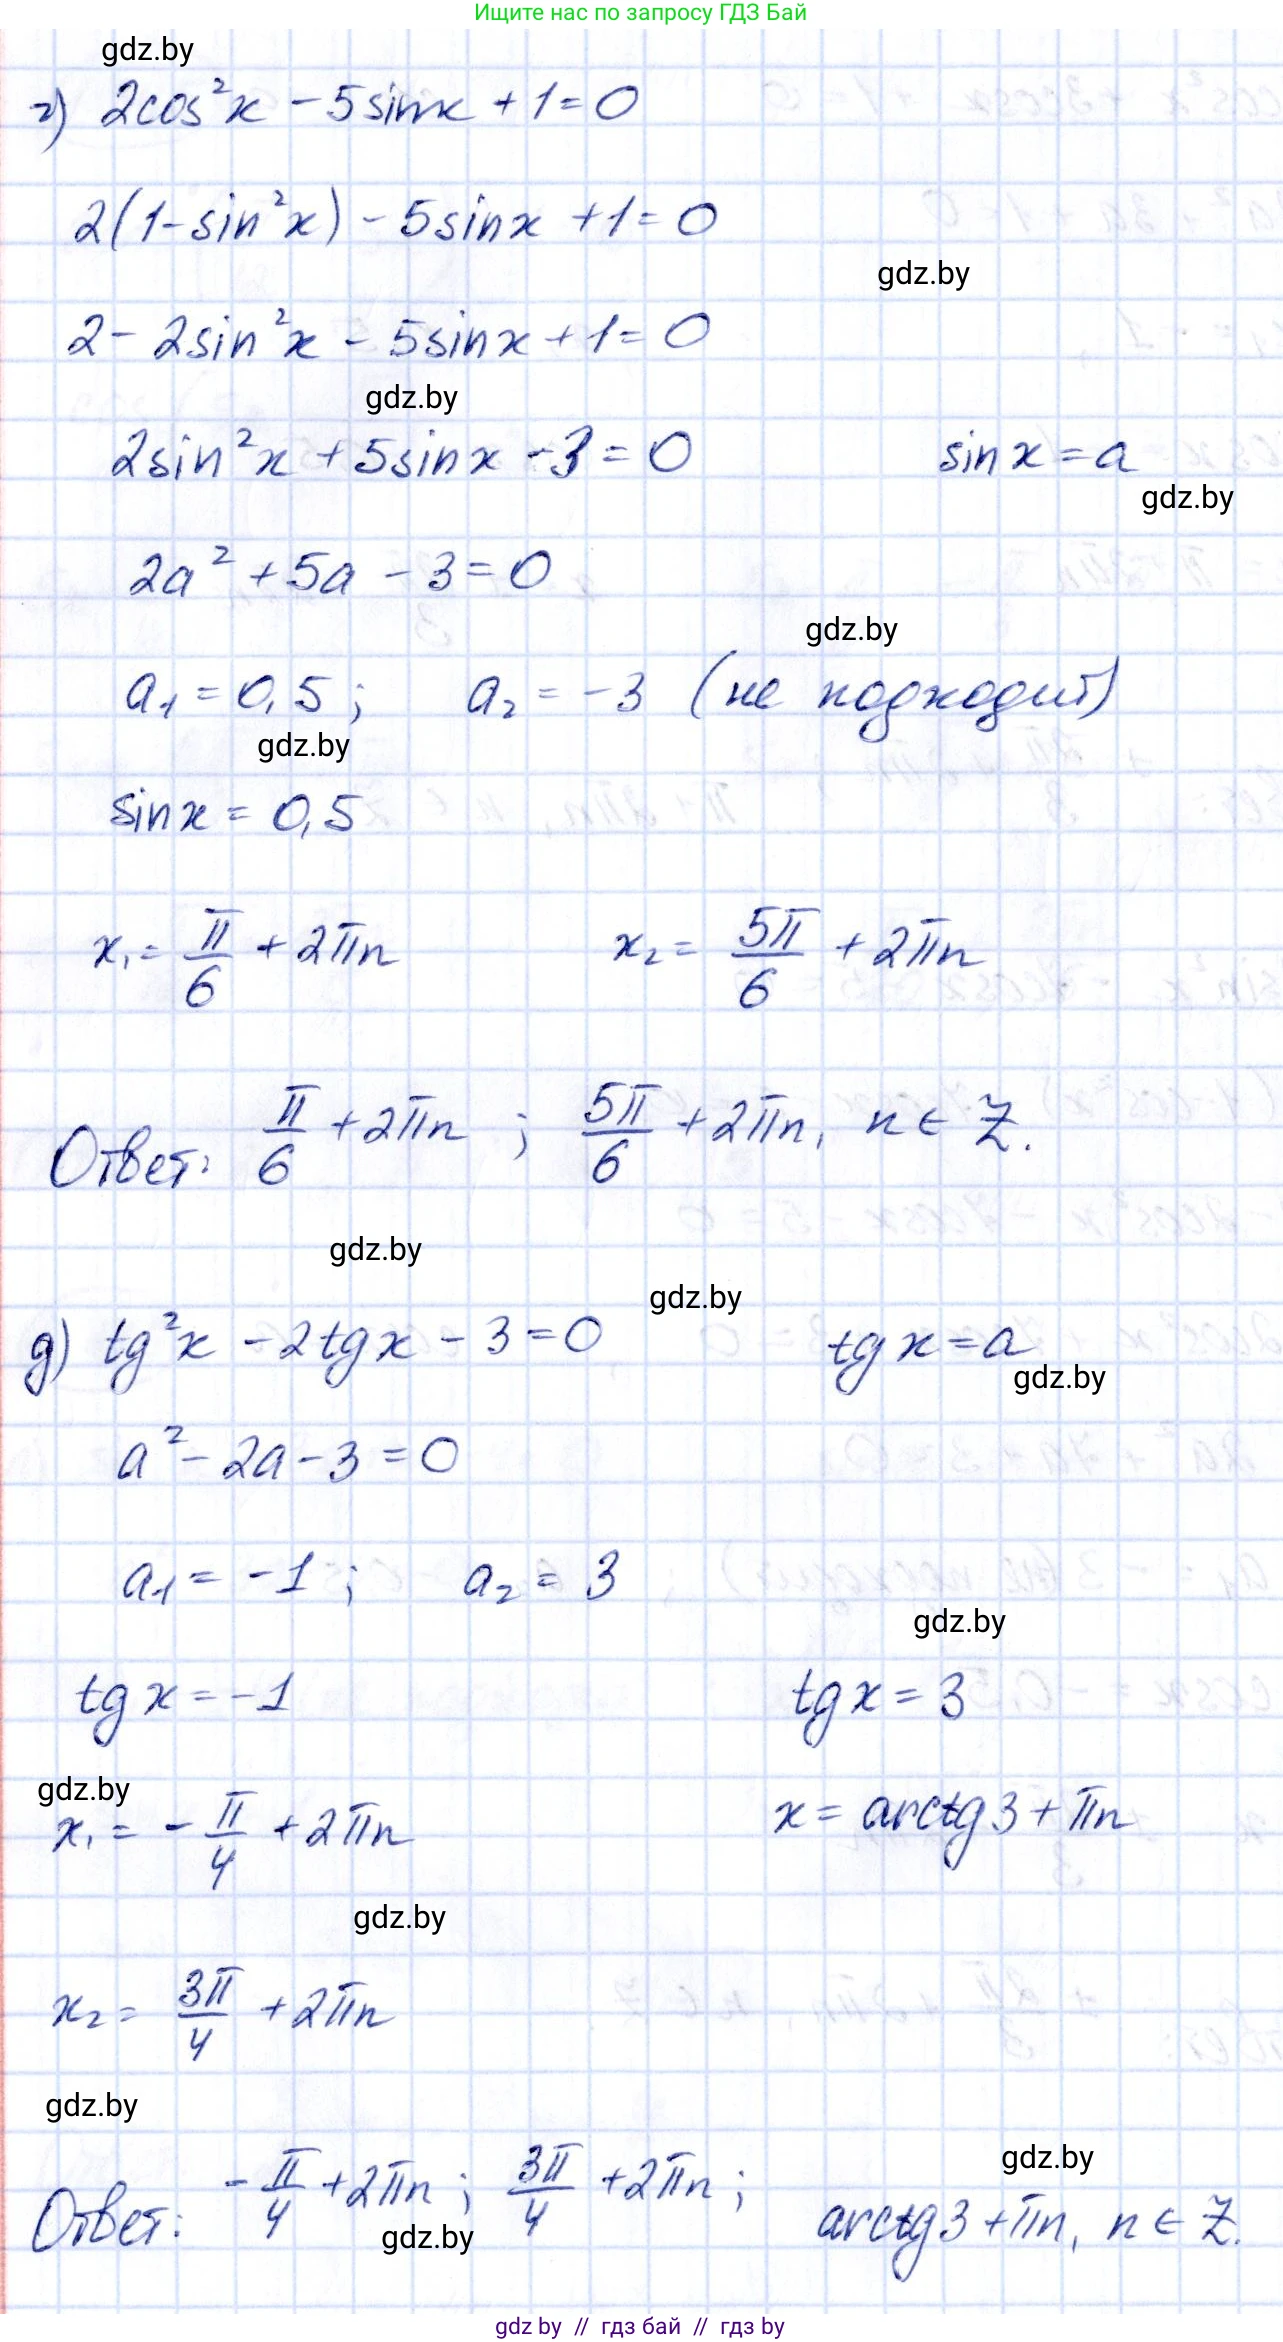 Ищите нас по запросу ГДЗ Бай
gdz.by
г) 2cos²x - 5sinx + 1 = 0
2(1 - sin²x) - 5sinx + 1 = 0
gdz.by
2 - 2sin²x - 5sinx + 1 = 0
gdz.by
2sin²x + 5sinx - 3 = 0 sinx = a
gdz.by
2a² + 5a - 3 = 0
gdz.by
a₁ = 0,5; a₂ = -3 (не подходит)
gdz.by
sinx = 0,5
x₁ = π/6 + 2πn x₂ = 5π/6 + 2πn
Ответ: π/6 + 2πn ; 5π/6 + 2πn, n ∈ Z.
gdz.by
gdz.by
д) tg²x - 2tgx - 3 = 0 tgx = a
gdz.by
a² - 2a - 3 = 0
a₁ = -1; a₂ = 3
gdz.by
tgx = -1 tgx = 3
gdz.by
x₁ = -π/4 + 2πn x = arctg3 + πn
gdz.by
x₂ = 3π/4 + 2πn
gdz.by
gdz.by
Ответ: -π/4 + 2πn; 3π/4 + 2πn; arctg3 + πn, n ∈ Z.
gdz.by
gdz by // гдз бай // гдз by